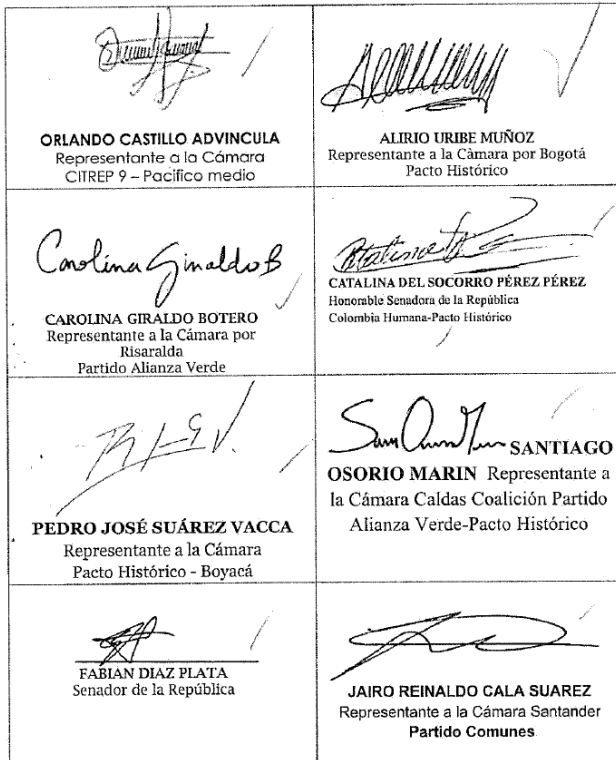 ORLANDO CASTILLO ADVINCULA
Representante a la Cámara
CITREP 9 – Pacifico medio
ALIRIO URIBE MUÑOZ
Representante a la Càmara por Bogotá
Pacto Histórico
Carolina Giraldo B
CAROLINA GIRALDO BOTERO
Representante a la Cámara por
Risaralda
Partido Alianza Verde
CATALINA DEL SOCORRO PÉREZ PÉREZ
Honorable Senadora de la República
Colombia Humana-Pacto Histórico
PEDRO JOSÉ SUÁREZ VACCA
Representante a la Cámara
Pacto Histórico - Boyacá
SANTIAGO
OSORIO MARIN Representante a
la Cámara Caldas Coalición Partido
Alianza Verde-Pacto Histórico
FABIAN DIAZ PLATA
Senador de la República
JAIRO REINALDO CALA SUAREZ
Representante a la Cámara Santander
Partido Comunes